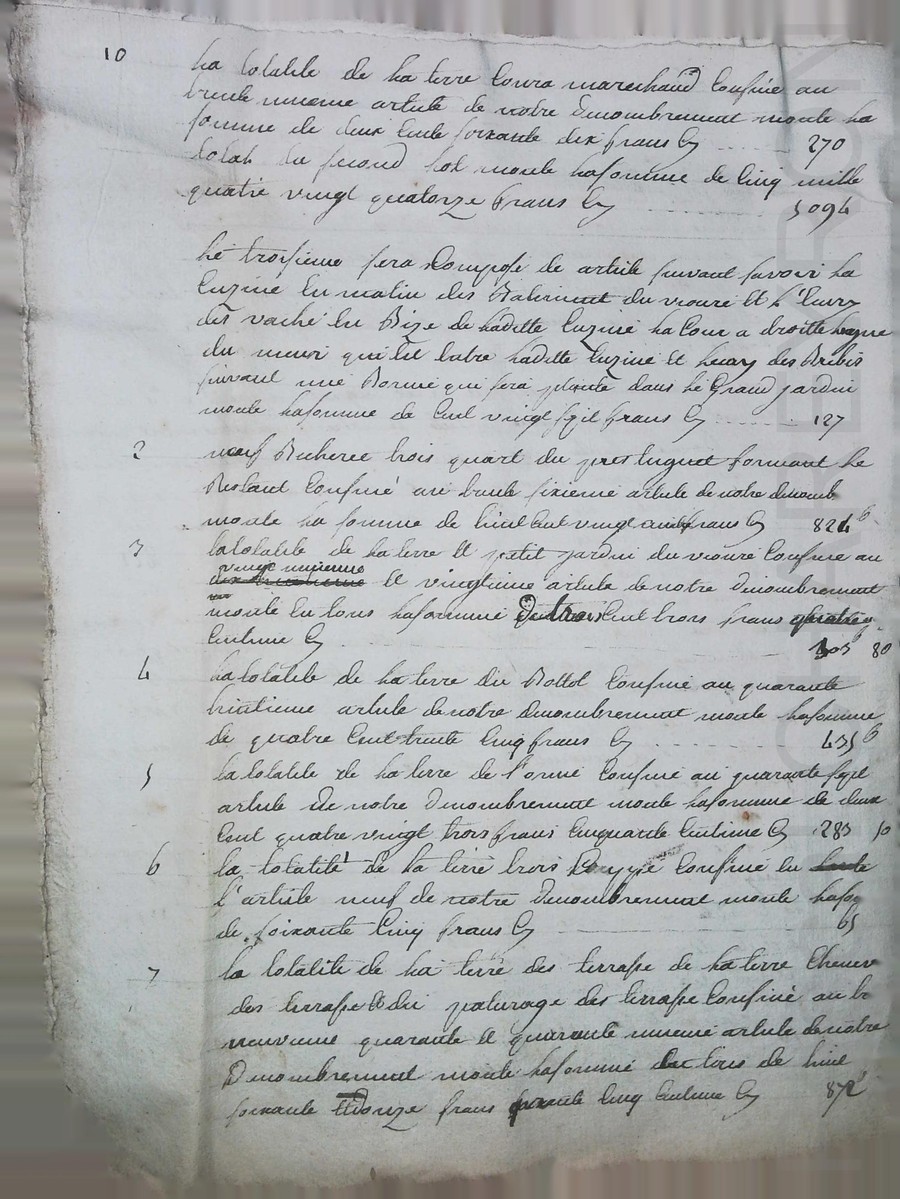 10 La totalite de La terre Coura marechaud Confine au
trente unieme article de notre Denombrement monte La
somme de deux Cents soixante dix frans Cy 270
total du second lot monte La somme de Cinq mille
quatre vingt quatorze frans Cy 5094
Le troisieme sera Compose de article suivant savoir La
Cuzine En matin des Batiment du vioure Et L'Ecury
des vache En Bize de Ladite Cuzine La Cour a droitte Ligne
du mur qui Est Entre Ladite Cuzine Et Lecury des Brebis
suivant une Borne qui sera plante dans Le Grand jardin
monte La somme de Cent vingt sept frans Cy 127
2 neuf Bicheree trois quart du pres Luguet formant Le
Restant Confiné au trente sixieme article de notre denomb
monte La somme de huit Cent vingt frans Cy
3 La totalite de La terre Et petit jardin du vioure Confine au
vingt unieme
Et vingtieme article de notre Denombrement
monte En tous La somme de trois Cent trois frans quatre
Centime Cy 80
4 La totalite de La terre du Bottol Confine au quarante
huitieme article de notre Denombrement monte La somme
de quatre Cent trente Cinq frans Cy 435
5 La totalite de La terre de l'orme Confine au quarante sept
article de notre Denombrement monte La somme de deux
Cent quatre vingt trois frans Cinquante Centime Cy 283 50
6 La totalité de La terre trois Confine En
l'article neuf de notre Denombrement monte La so
de soixante Cinq frans Cy 65
7 La totalite de La terre des terrasse de La terre Chenev
des terrasse Et du paturage des terrasse Confine au tr
neuvieme quarante Et quarante unieme article de notre
Denombrement monte La somme de tous de huit
soixante Et Douze frans Cinq Centime Cy 872